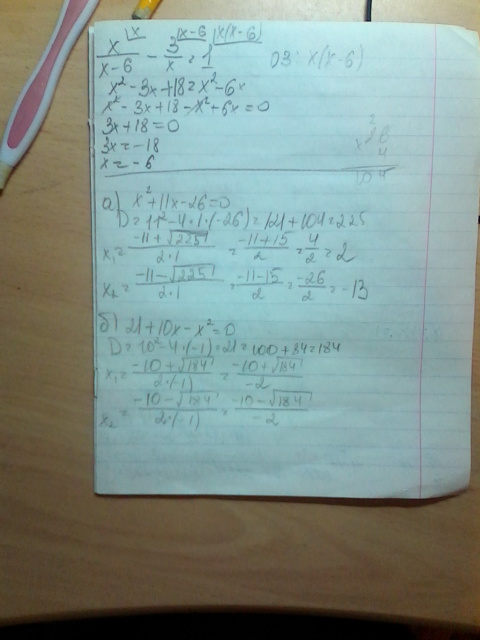 x/(x-6) |x - 3/x |x-6 = 1 |x(x-6)    ОЗ: x(x-6)
x² - 3x + 18 = x² - 6x
x² - 3x + 18 - x² + 6x = 0
3x + 18 = 0
3x = -18
x = -6
× 26
4
104
а) x² + 11x - 26 = 0
D = 11² - 4·1·(-26) = 121 + 104 = 225
x₁ = (-11 + √225)/(2·1) = (-11+15)/2 = 4/2 = 2
x₂ = (-11 - √225)/(2·1) = (-11-15)/2 = -26/2 = -13
б) 21 + 10x - x² = 0
D = 10² - 4·(-1)·21 = 100 + 84 = 184
x₁ = (-10 + √184)/(2·(-1)) = (-10 + √184)/-2
x₂ = (-10 - √184)/(2·(-1)) = (-10 - √184)/-2